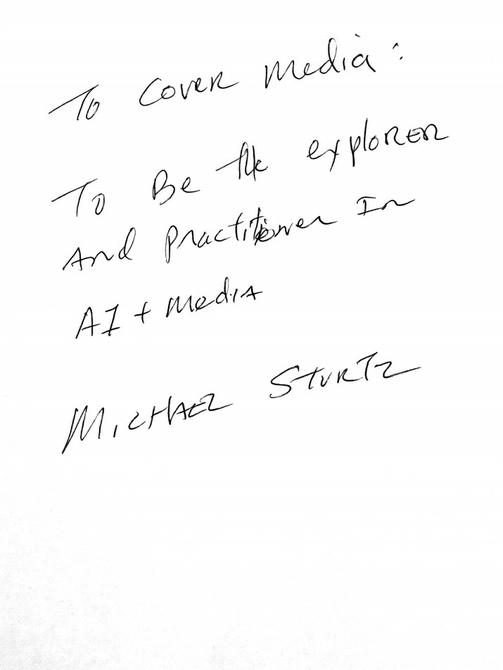 To Cover Media:
To Be the explorer
And Practitioner In
AI + Media
Michael Sturtz